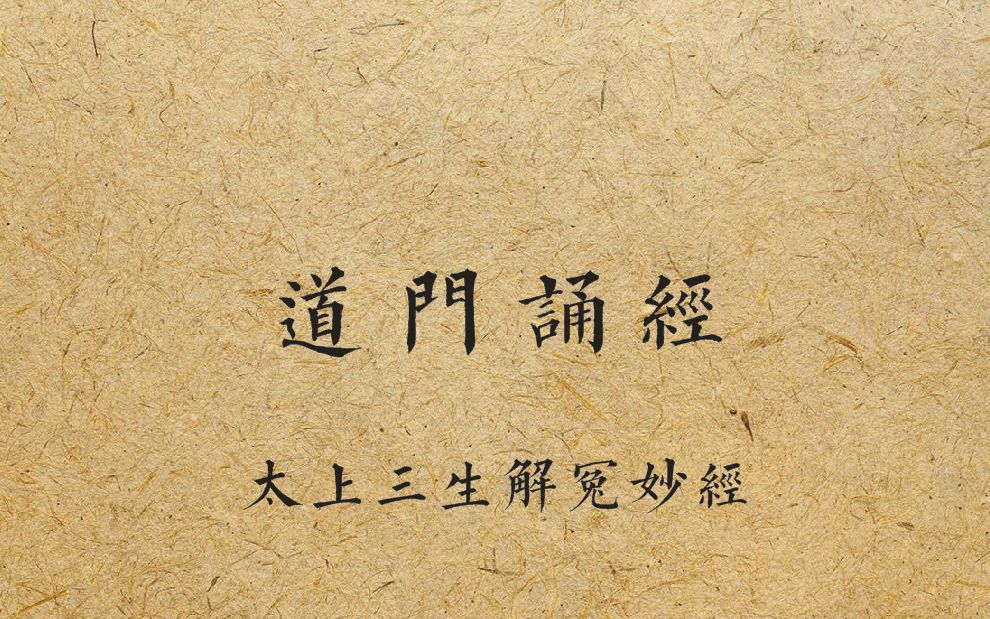 道門誦經
太上三生解冤妙經